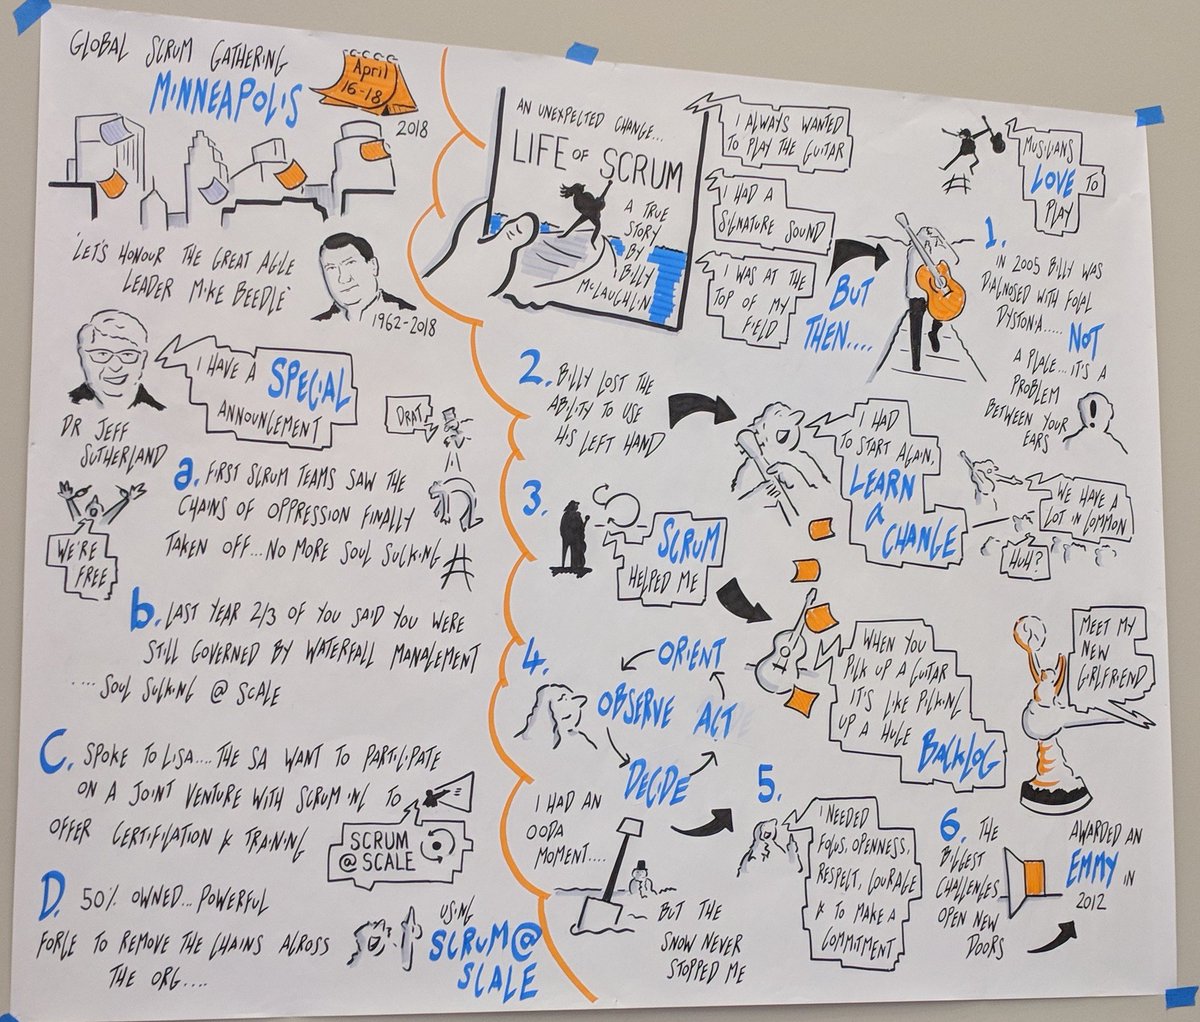 GLOBAL SCRUM GATHERING
MINNEAPOLIS
April
16-18
2018
'LET'S HONOUR THE GREAT AGILE
LEADER MIKE BEEDLE'
1962-2018
DR JEFF
SUTHERLAND
I HAVE A
SPECIAL
ANNOUNCEMENT
DRAT
a. FIRST SCRUM TEAMS SAW THE
CHAINS OF OPPRESSION FINALLY
TAKEN OFF... NO MORE SOUL SUCKING
WE'RE
FREE
b. LAST YEAR 2/3 OF YOU SAID YOU WERE
STILL GOVERNED BY WATERFALL MANAGEMENT
.... SOUL SUCKING @ SCALE
C. SPOKE TO LISA.... THE SA WANT TO PARTICIPATE
ON A JOINT VENTURE WITH SCRUM INC TO
OFFER CERTIFICATION & TRAINING
SCRUM
@ SCALE
D. 50% OWNED... POWERFUL
FORCE TO REMOVE THE CHAINS ACROSS
THE ORG....
USING
SCRUM@
SCALE
AN UNEXPECTED CHANGE...
LIFE OF SCRUM
A TRUE
STORY
BY
BILLY
MCLAUGHLIN
I ALWAYS WANTED
TO PLAY THE GUITAR
I HAD A
SIGNATURE SOUND
I WAS AT THE
TOP OF MY
FIELD
BUT
THEN....
MUSICIANS
LOVE TO
PLAY
1.
IN 2005 BILLY WAS
DIAGNOSED WITH FOCAL
DYSTONIA..... NOT
A PLACE... IT'S A
PROBLEM
BETWEEN YOUR
EARS
2. BILLY LOST THE
ABILITY TO USE
HIS LEFT HAND
I HAD
TO START AGAIN,
LEARN
&
CHANGE
WE HAVE A
LOT IN COMMON
HUH?
3.
SCRUM
HELPED ME
WHEN YOU
PICK UP A GUITAR
IT'S LIKE PICKING
UP A HUGE
BACKLOG
MEET MY
NEW
GIRLFRIEND
4.
ORIENT
OBSERVE ACT
DECIDE
I HAD AN
OODA
MOMENT....
BUT THE
SNOW NEVER
STOPPED ME
5.
I NEEDED
FOCUS, OPENNESS,
RESPECT, COURAGE
& TO MAKE A
COMMITMENT
6. THE
BIGGEST
CHALLENGES
OPEN NEW
DOORS
AWARDED AN
EMMY IN
2012